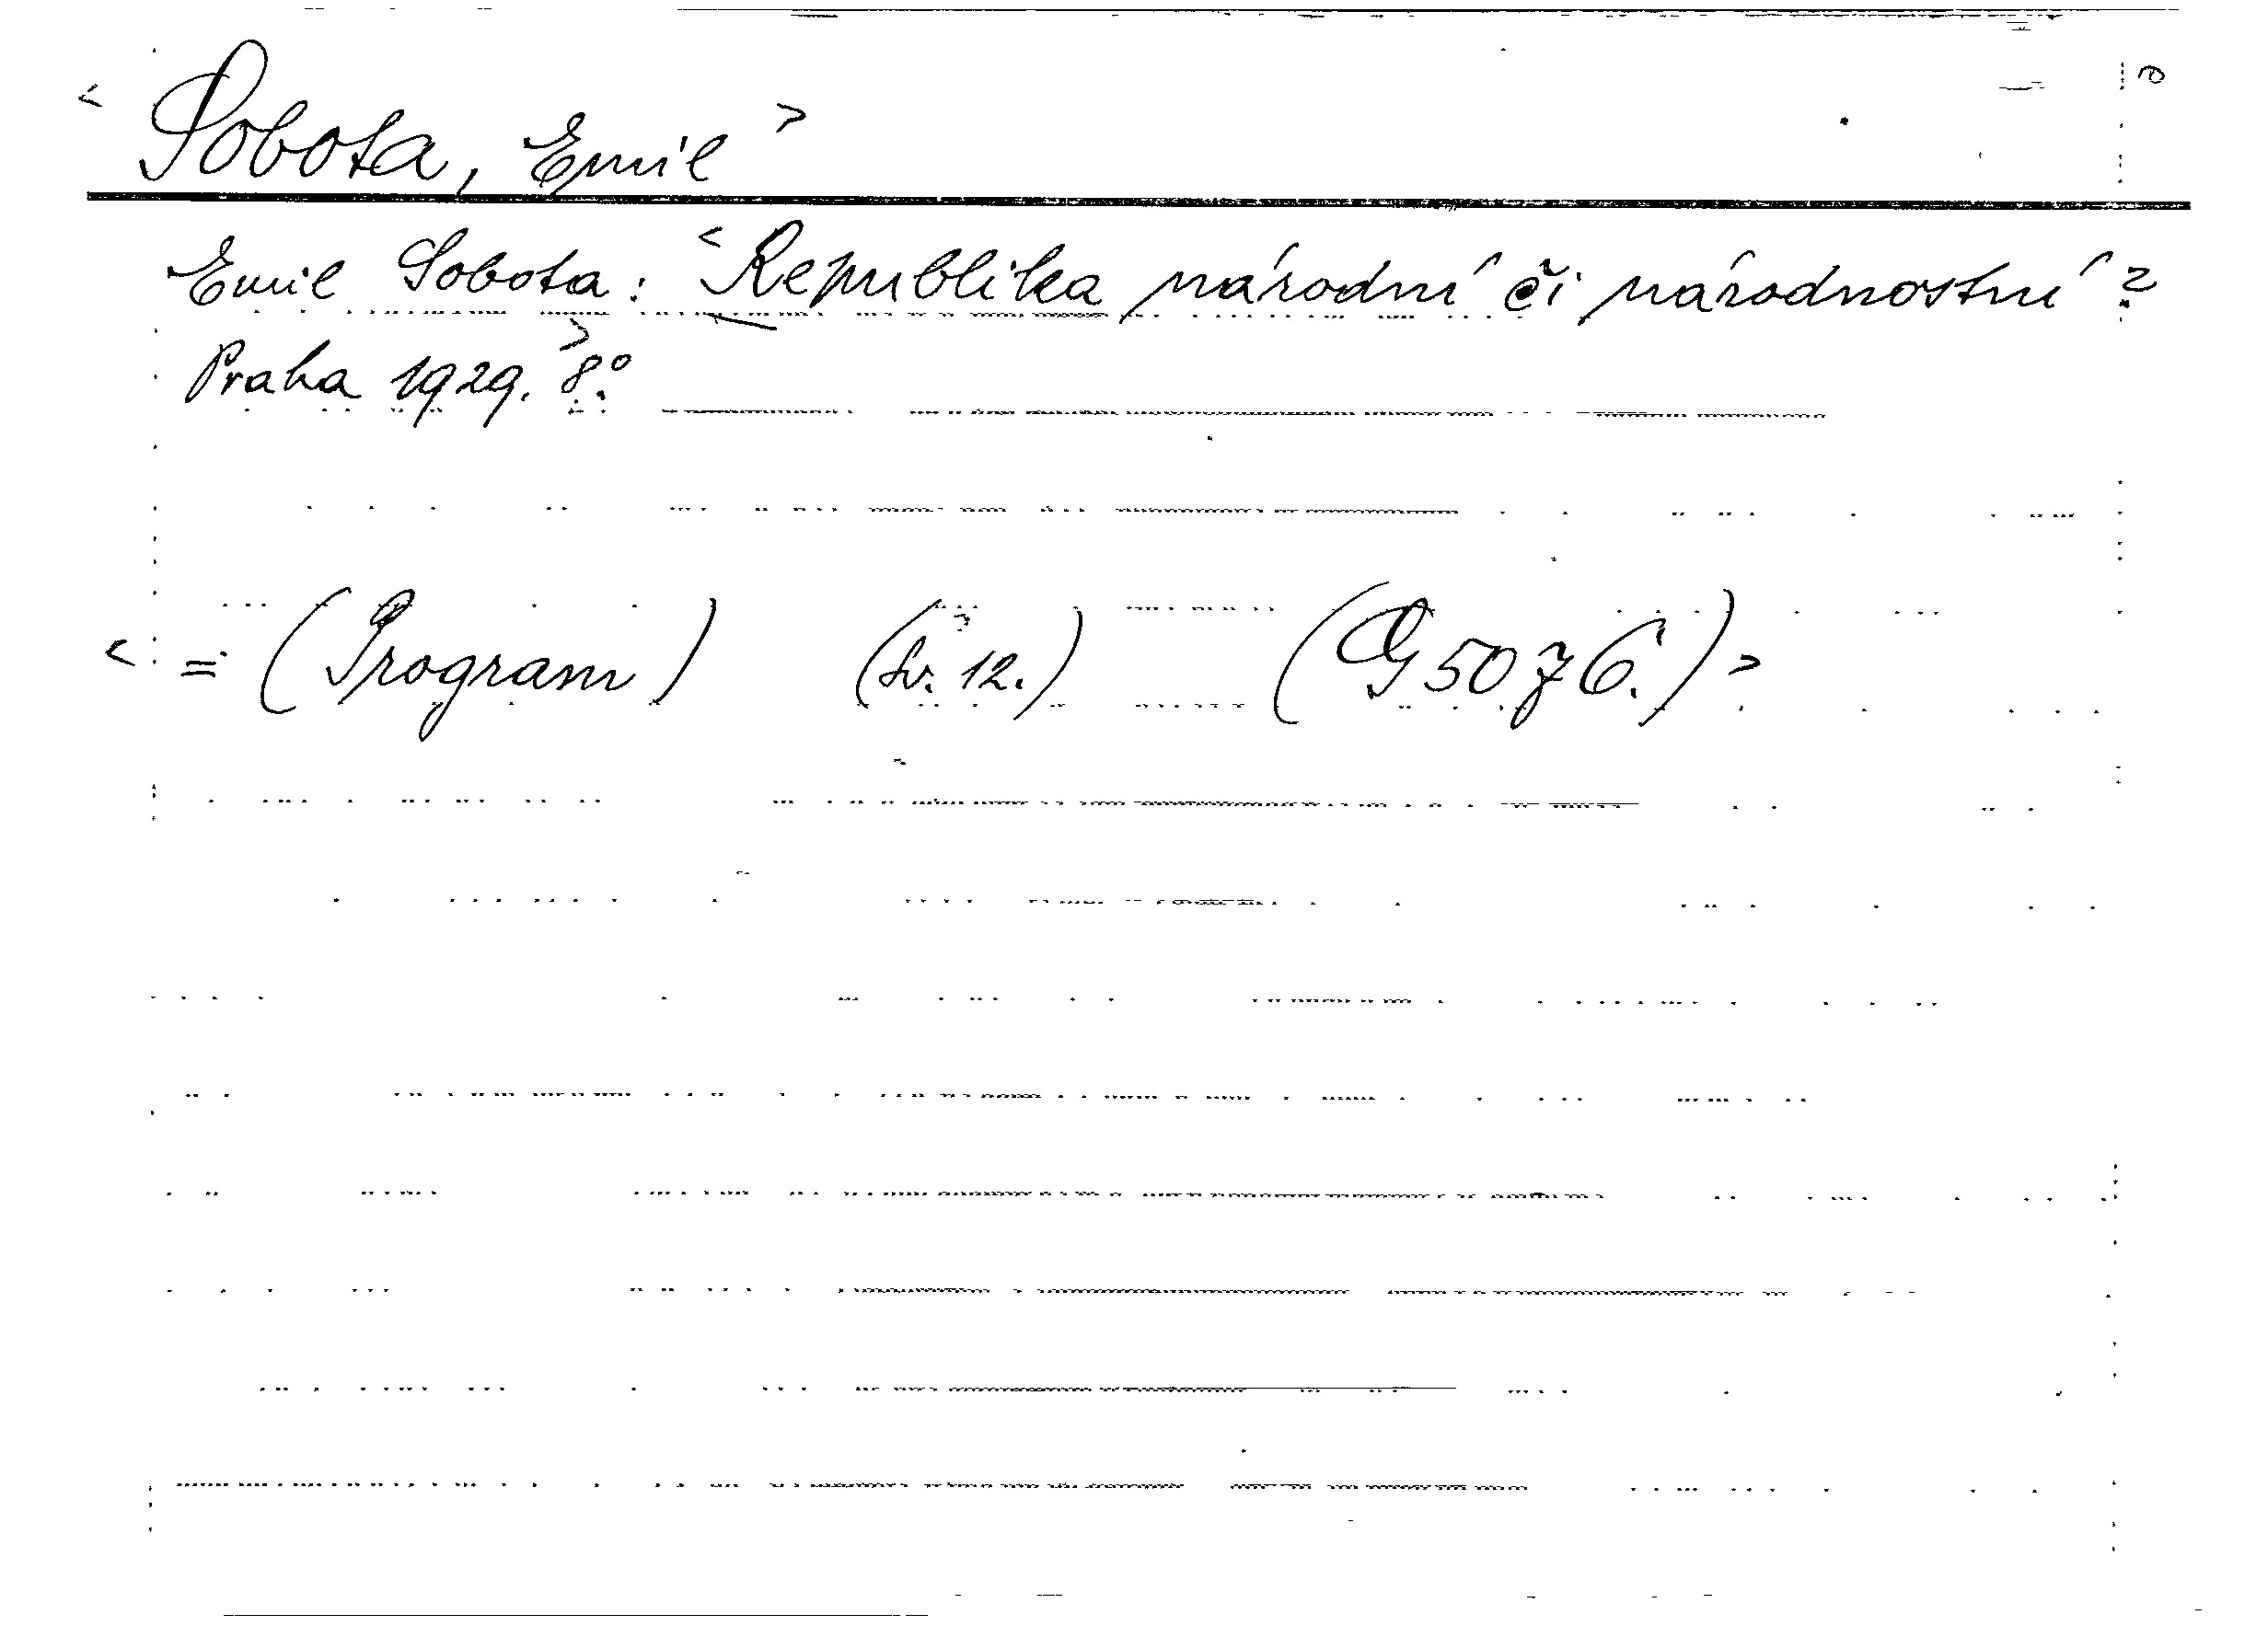 < Sobota, Emil >
Emil Sobota: < Republika národní či národnostní?
Praha 1929. > 8°.
< = (Program) (Sv. 12.) (G 5076.) >